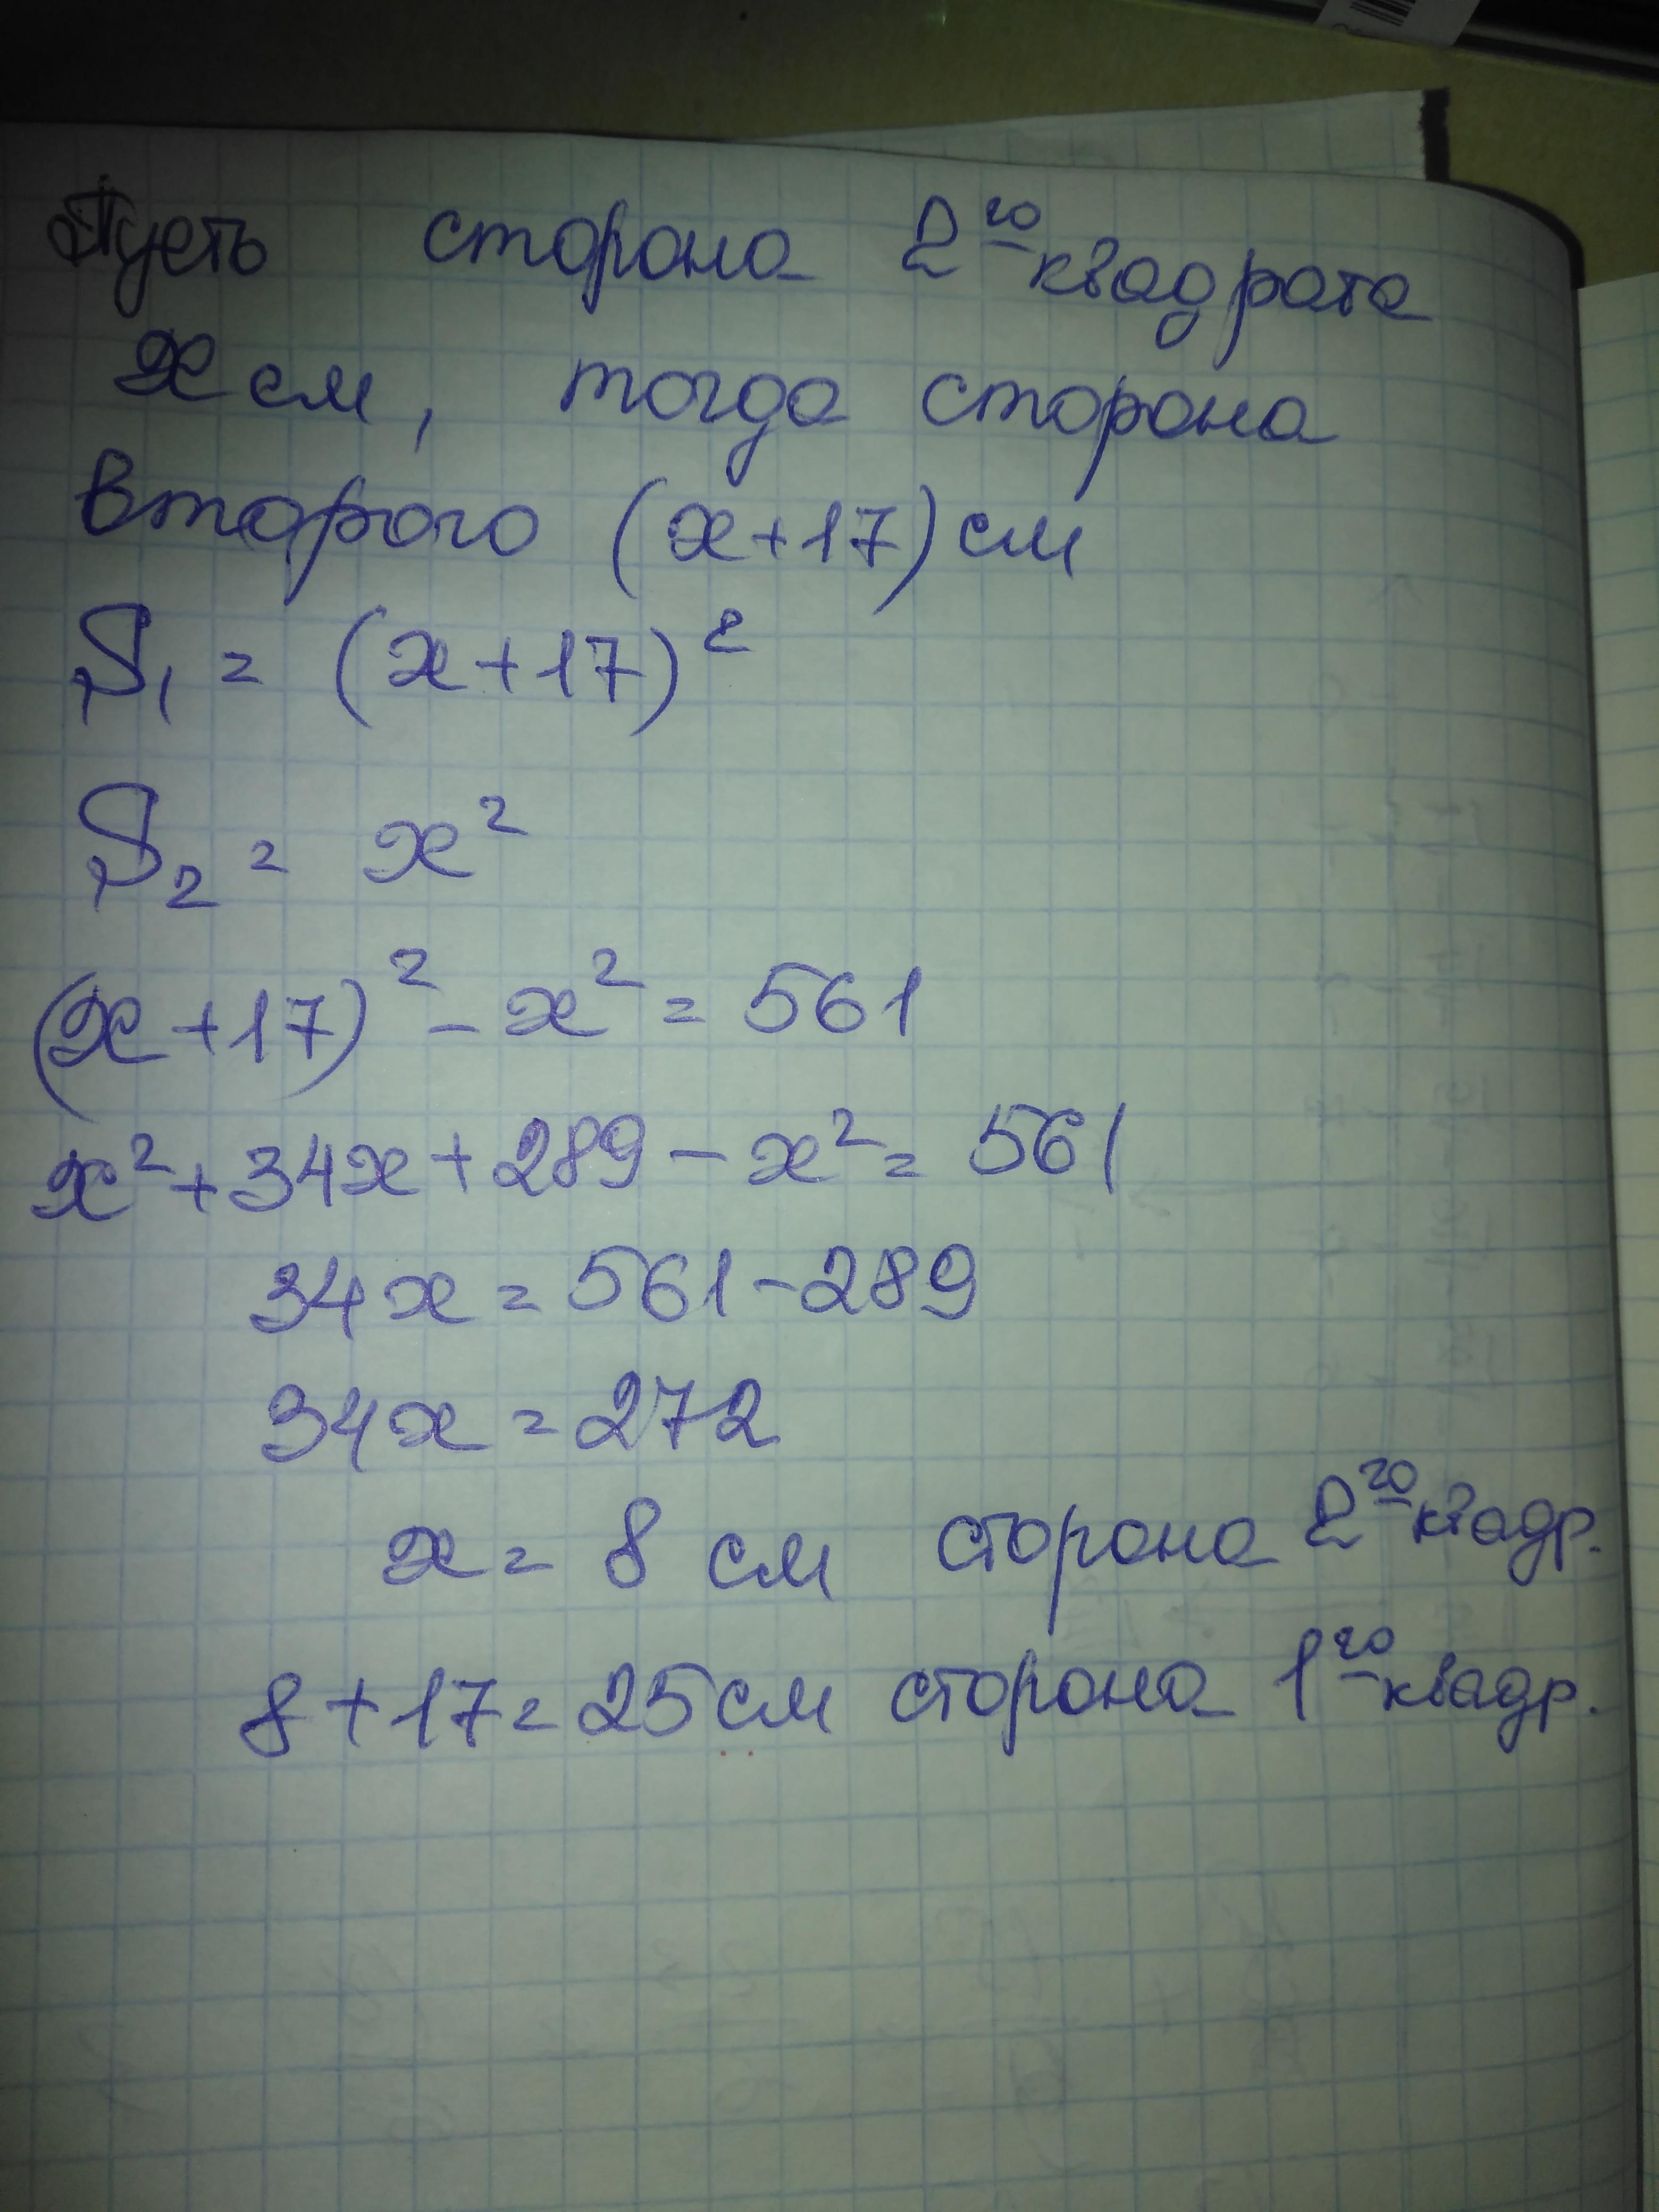 Пусть сторона 2го квадрата
x см, тогда сторона
второго (x+17) см
S₁ = (x+17)²
S₂ = x²
(x+17)² - x² = 561
x² + 34x + 289 - x² = 561
34x = 561 - 289
34x = 272
x = 8 см сторона 2го квадр.
8 + 17 = 25 см сторона 1го квадр.